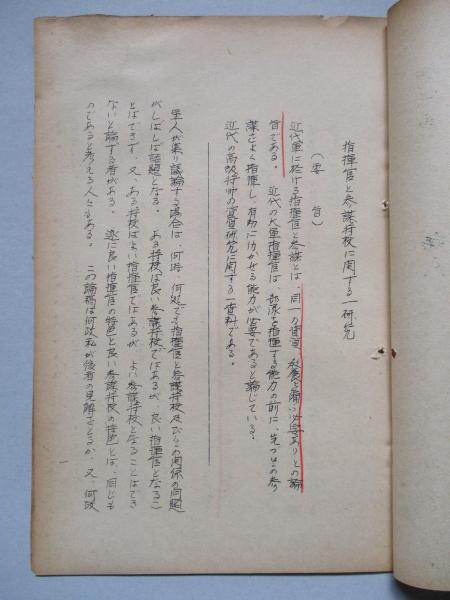 指揮官と参謀将校に関する一研究
（要 旨）
近代軍に於ける指揮官と参謀とは、同一の資質、秋養を備い必要ありとの論
旨である。 近代の大軍指揮官は、部隊を指揮する能力の前に、先づその参
謀をよく指揮し、有効に仂かせる能力が必要であると論じている。
近代の高級将帥の資質研究に関する一資料である。
軍人が集り議論する場合は、何時、何処でも指揮官と参謀将校及びその関係の問題
がしばしば話題となる。 ある将校は良い参謀将校ではあるが、良い指揮官となるこ
とはできず、又、ある将校はよい指揮官ではあるが、よい参謀将校となることはでき
ないと論する者がある。 逆に良い指揮官の特色と良い参謀将校の特色とは、同じも
のであると考える人もある。 この論稿は何故私が後者の見解をとるか、又、何故
一